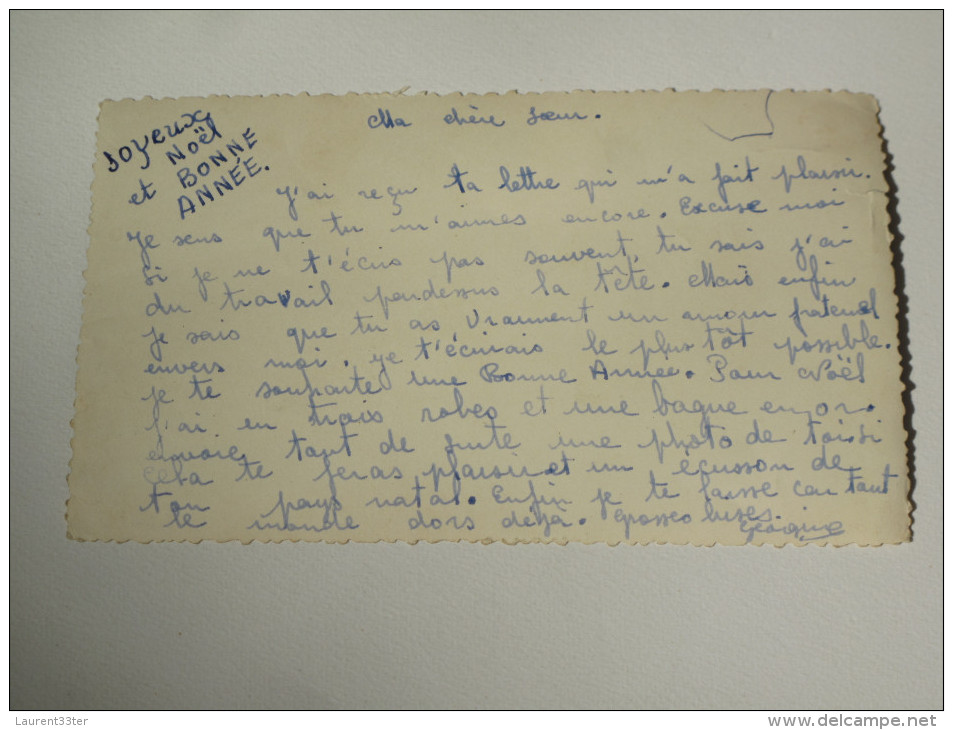 Joyeux
Noël
et BONNE
ANNÉE.
Ma chère Sœur.
J'ai reçu ta lettre qui m'a fait plaisir.
Je sens que tu m'aimes encore. Excuse moi
si je ne t'écris pas souvent, tu sais j'ai
du travail pardessus la tête. Mais enfin
je sais que tu as vraiment un amour fraternel
envers moi. Je t'écrirais le plus tôt possible.
Je te souhaite une Bonne Année. Pour Noël
j'ai eu trois robes et une bague en or.
envoie tout de suite une photo de toi si
cela te feras plaisir et un écusson de
ton pays natal. Enfin je te laisse car tout
le monde dors déjà. Grosses bises.
Georgine
Laurent33ter
www.delcampe.net